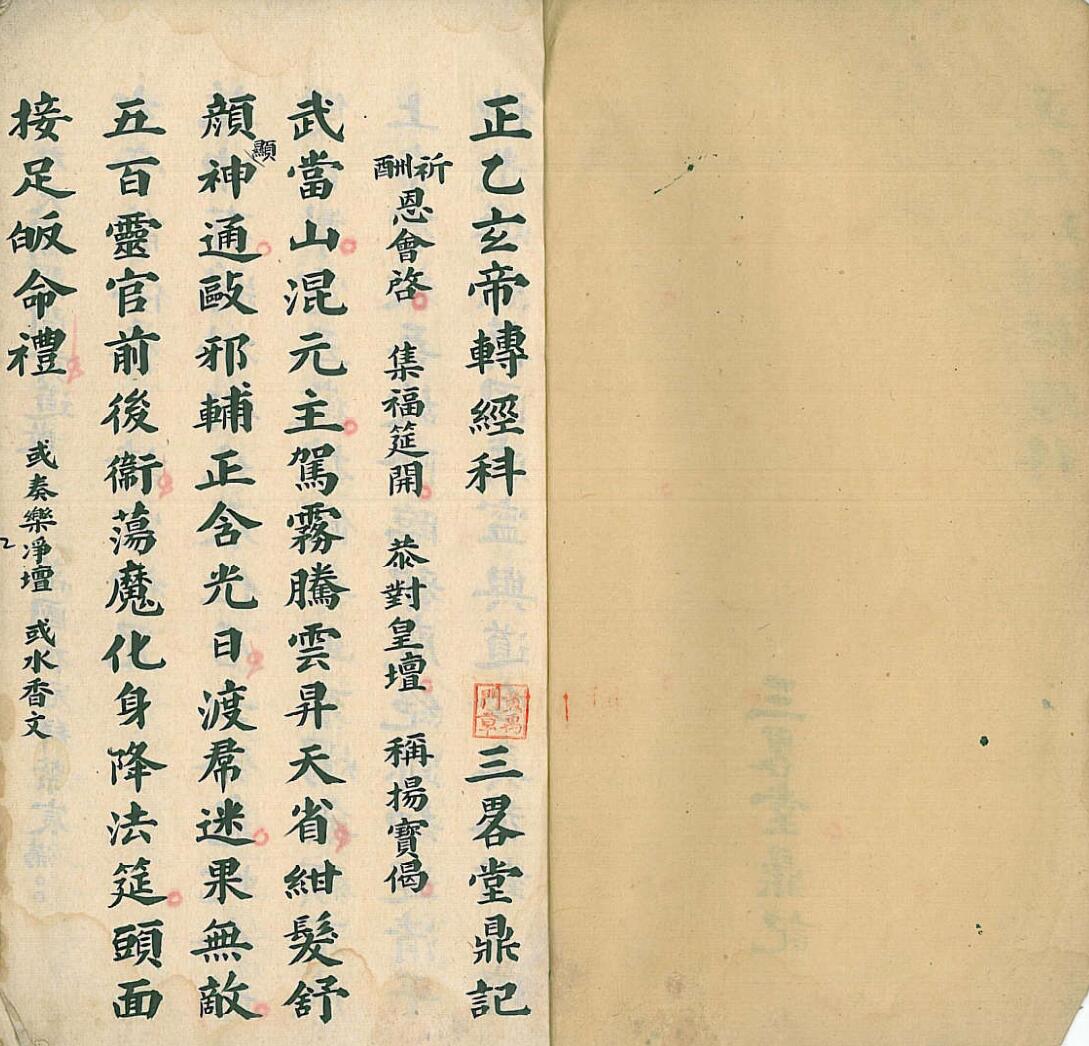 正乙玄帝轉經科 三畧堂鼎記
祈酬恩會啓 集福筵開 恭對皇壇 稱揚寶偈
武當山混元主駕霧騰雲昇天省紺髮舒
顏神通毆邪輔正含光日渡帬迷果無敵
顯
五百靈官前後衞蕩魔化身降法筵頭面
接足皈命禮 或奏樂淨壇 或水香文